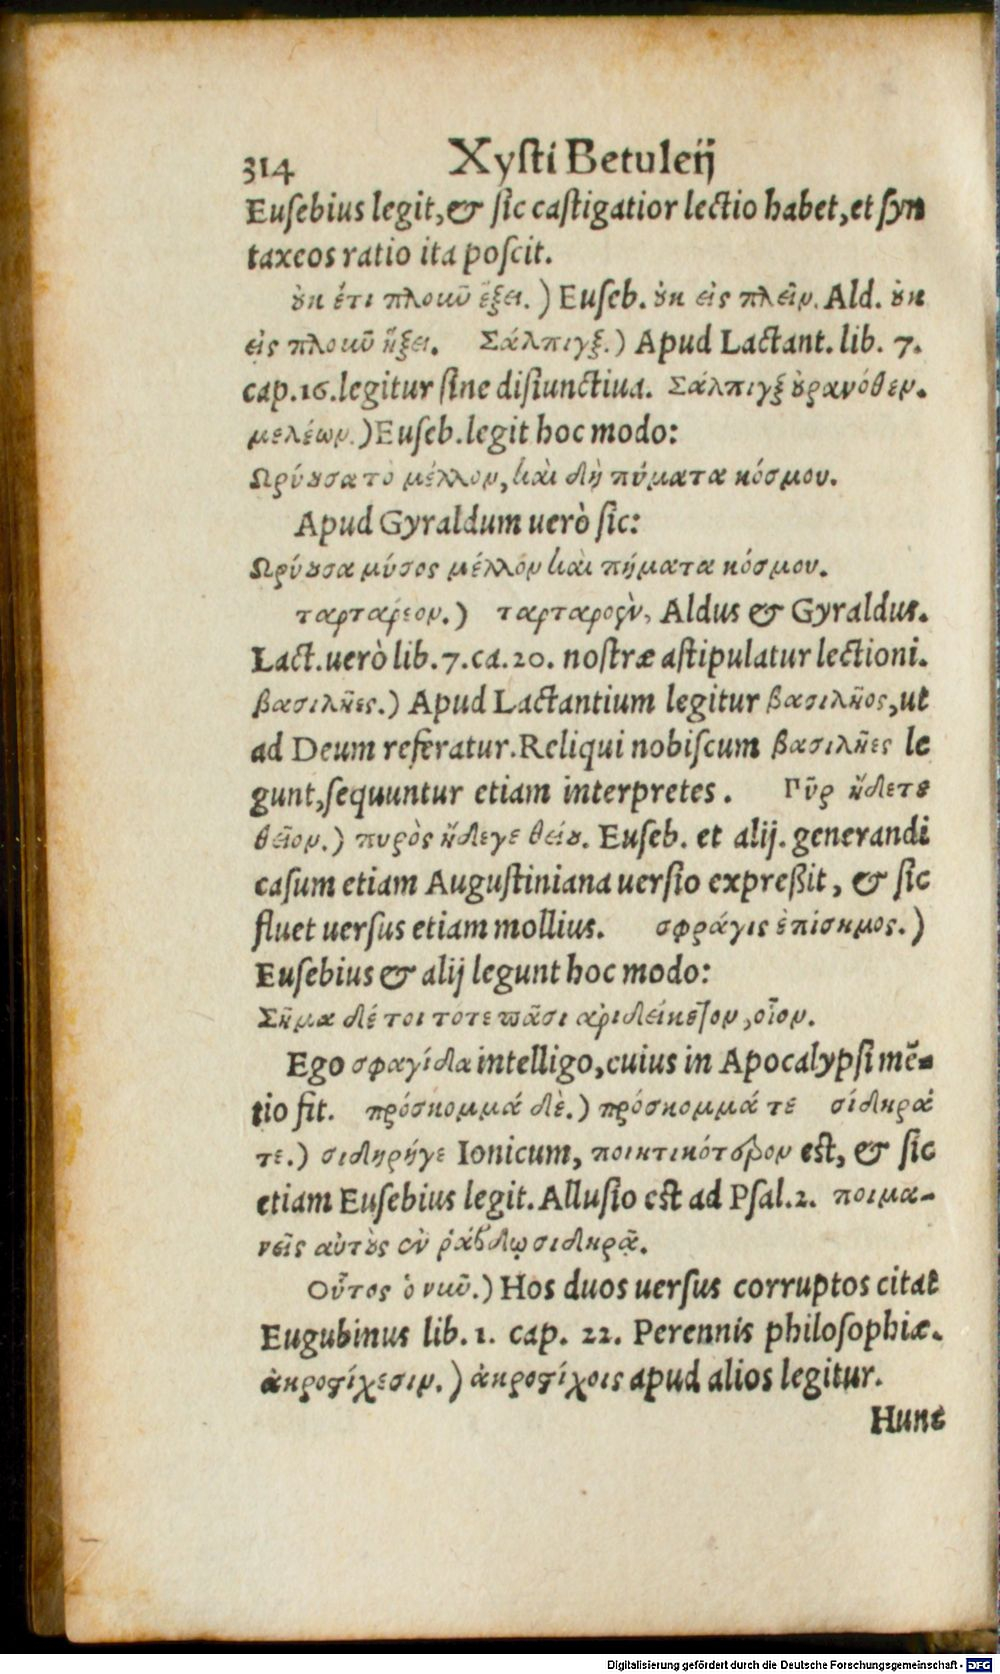 314 Xysti Betuleij
Eusebius legit, & sic castigatior lectio habet, et syn
taxeos ratio ita poscit.
οὐκ ἔτι πλοκοῦ ἕξει.) Euseb. οὐκ εἰς πλεῖν. Ald. οὐκ
εἰς πλοκοῦ ἥξει. Σάλπιγξ.) Apud Lactant. lib. 7.
cap. 16. legitur sine disiunctiua. Σάλπιγξ οὐρανόθεν.
μελέων.) Euseb. legit hoc modo:
Ωρύουσα τὸ μέλλον, καὶ δὴ πύματα κόσμου.
Apud Gyraldum uerò sic:
Ωρύουσα μύσος μέλλον καὶ πήματα κόσμου.
ταρτάρεον.) ταρταροὺν, Aldus & Gyraldus.
Lact. uerò lib. 7. ca. 20. nostræ astipulatur lectioni.
βασιλῆες.) Apud Lactantium legitur βασιλῆος, ut
ad Deum referatur. Reliqui nobiscum βασιλῆες le
gunt, sequuntur etiam interpretes. Πῦρ ἤδετε
θεῖον.) πυρὸς ἤδεγε θείου. Euseb. et alij. generandi
casum etiam Augustiniana uersio expreßit, & sic
fluet uersus etiam mollius. σφράγις ἐπίσημος.)
Eusebius & alij legunt hoc modo:
Σῆμα δέ τοι τοτε πᾶσι ἀριδείκετον, οἷον.
Ego σφαγίδα intelligo, cuius in Apocalypsi mē-
tio fit. πρόσκομμά δὲ.) πρόσκομμά τε σίδηρά
τε.) σιδηρήγε Ionicum, ποιητικότερον est, & sic
etiam Eusebius legit. Allusio est ad Psal. 2. ποιμα-
νεῖς αὐτοὺς ἐν ῥάβδῳ σιδηρᾷ.
Οὗτος ὁ νῦν.) Hos duos uersus corruptos citat
Eugubinus lib. 1. cap. 22. Perennis philosophiæ.
ἀκροστίχεσιν.) ἀκροστίχοις apud alios legitur.
Hunc
Digitalisierung gefördert durch die Deutsche Forschungsgemeinschaft - DFG